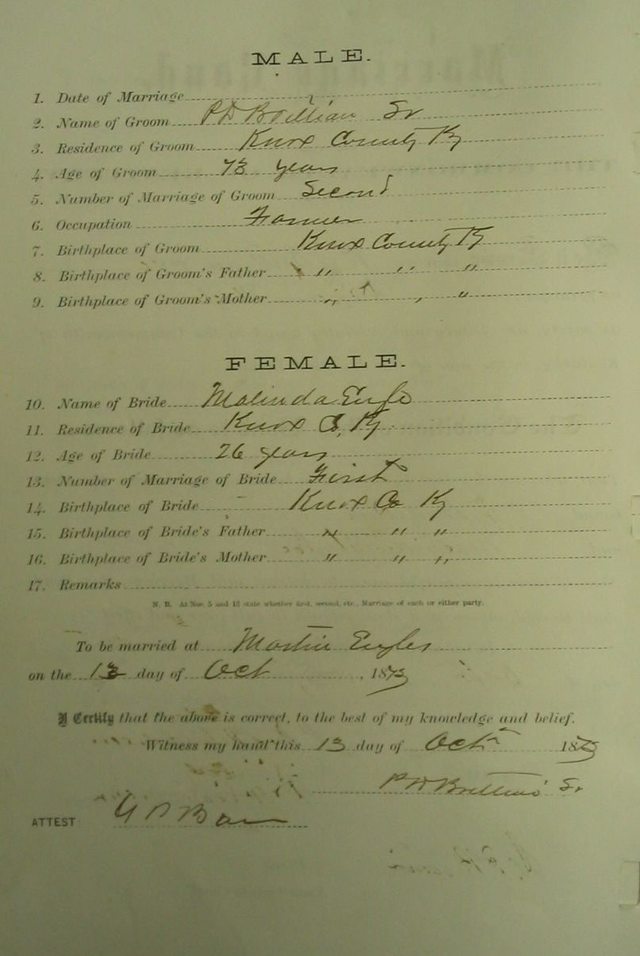 MALE.
1. Date of Marriage
2. Name of Groom P D Sr
3. Residence of Groom Knox County Ky
4. Age of Groom 73 years
5. Number of Marriage of Groom Second
6. Occupation Farmer
7. Birthplace of Groom Knox County Ky
8. Birthplace of Groom's Father " " "
9. Birthplace of Groom's Mother " " "
FEMALE.
10. Name of Bride Malinda Engle
11. Residence of Bride Knox Co, Ky
12. Age of Bride 26 years
13. Number of Marriage of Bride First
14. Birthplace of Bride Knox Co Ky
15. Birthplace of Bride's Father " " "
16. Birthplace of Bride's Mother " " "
17. Remarks
N. B. At Nos 5 and 13 state whether first, second, etc. Marriage of each or either party.
To be married at Martin Engles
on the 13 day of Oct, 1873
I Certify that the above is correct, to the best of my knowledge and belief.
Witness my hand this 13 day of Oct 1873
P D Sr
ATTEST